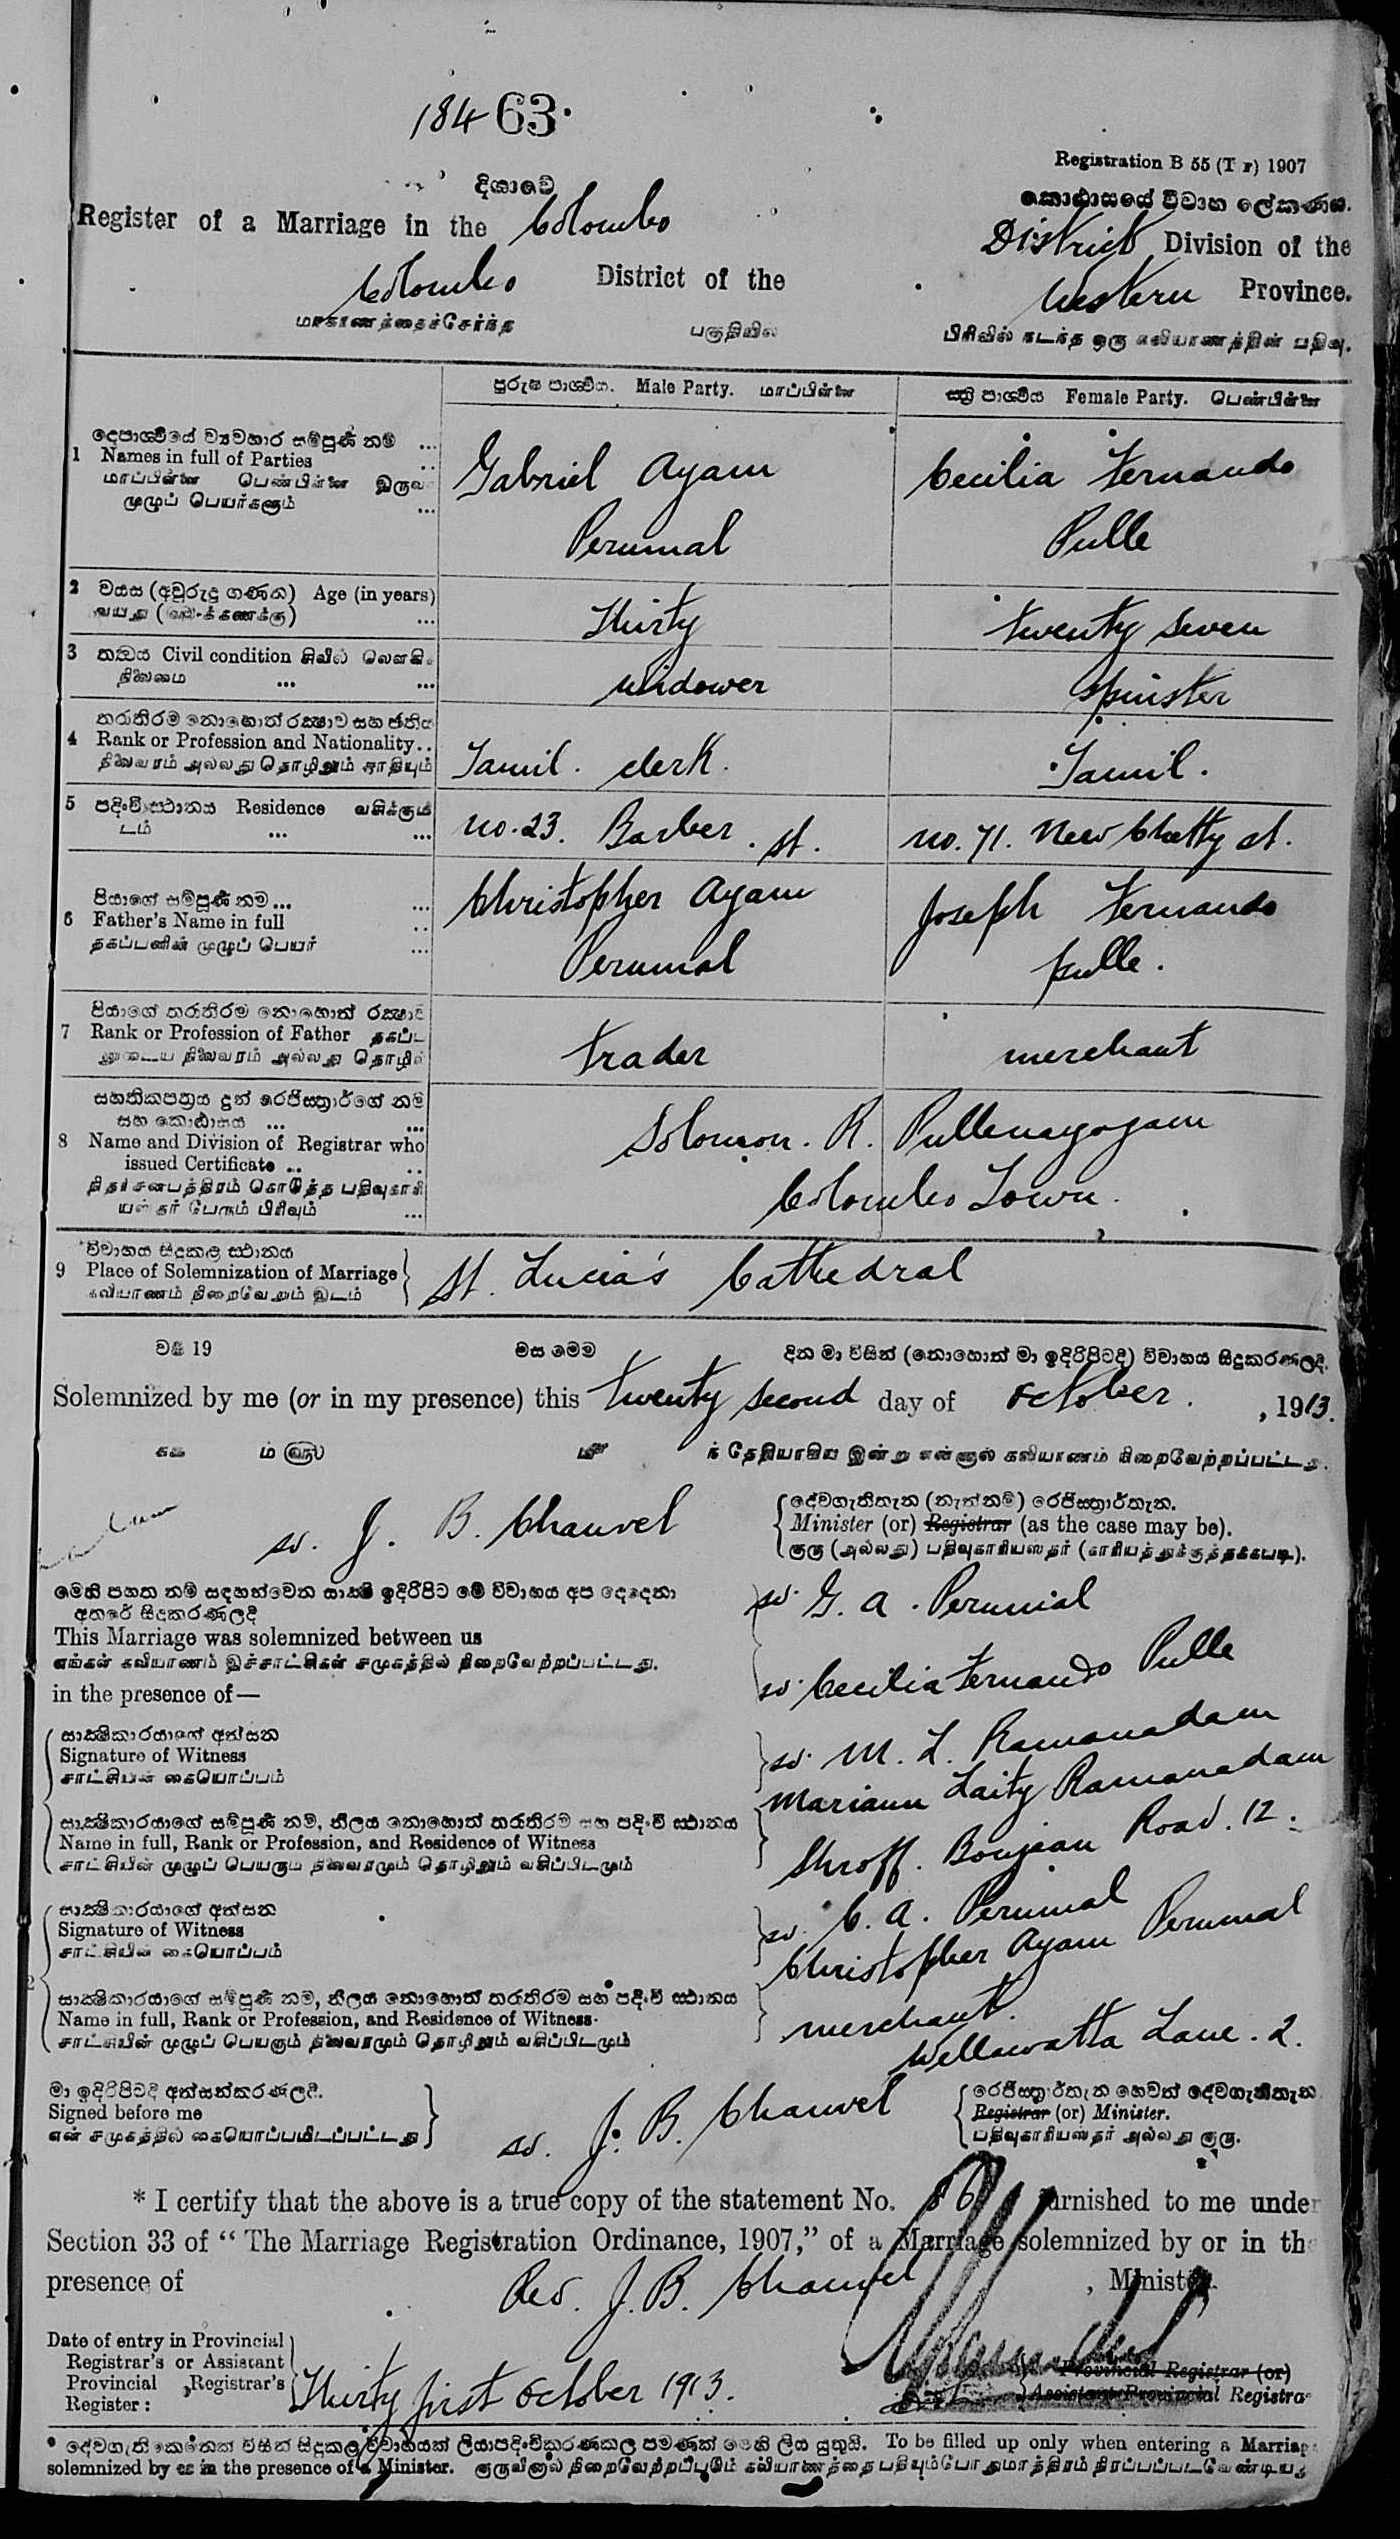 184 63.
Registration B 55 (T r) 1907
දිසාවේ
කොට්ඨාසයේ විවාහ ලේකණය.
Register of a Marriage in the Colombo District Division of the
Colombo District of the Western Province.
மாகாணத்தைச்சேர்ந்த பகுதியில் பிரிவில் நடந்த ஒரு கலியாணத்தின் பதிவு.
පුරුෂ පාර්ශ්වය. Male Party. மாப்பிள்ளை
ස්ත්‍රී පාර්ශ්වය Female Party. பெண்பிள்ளை
දෙපාර්ශ්වයේ ව්‍යවහාර සම්පූර්ණ නම් ...
1 Names in full of Parties
மாப்பிள்ளை பெண்பிள்ளை இருவ
முழுப் பெயர்களும் ...
Gabriel Ayam
Perumal
Cecilia Fernando
Pulle
2 වයස (අවුරුදු ගණන) Age (in years)
வயது ...
Thirty
twenty seven
3 තත්වය Civil condition சிவில்
நிலைமை ... ...
widower
spinster
තරාතිරම නොහොත් රක්ෂාව සහ ජාතිය
4 Rank or Profession and Nationality ..
நிலைவரம் அல்லது தொழிலும் சாதியும்
Tamil. clerk.
Tamil.
5 පදිංචි ස්ථානය Residence வசிக்கும்
டம் ... ...
no. 23. Barber. st.
no. 71. New Chetty st.
පියාගේ සම්පූර්ණ නම ... ...
6 Father's Name in full
தகப்பனின் முழுப் பெயர் ...
Christopher Ayam
Perumal
Joseph Fernando
pulle.
පියාගේ තරාතිරම නොහොත් රක්ෂාව
7 Rank or Profession of Father தகப்ப
னுடைய நிலைவரம் அல்லது தொழில்
trader
merchant
සහතිකපත්‍රය දුන් රෙජිස්ත්‍රාර්ගේ නම
සහ කොට්ඨාසය ... ...
8 Name and Division of Registrar who
issued Certificate ..
அத்தாட்சிபத்திரம் கொடுத்த பதிவுகாரி
யஸ்தர் பேரும் பிரிவும் ...
Solomon. R. Pullenayagam
Colombo Town.
විවාහය සිදුකළ ස්ථානය
9 Place of Solemnization of Marriage
கலியாணம் நிறைவேறும் இடம்
St. Lucia's Cathedral
වර්ෂ 19 මස මෙම දින මා විසින් (නොහොත් මා ඉදිරිපිටදී) විවාහය සිදුකරණලදි.
Solemnized by me (or in my presence) this twenty second day of October. , 1913.
ந் தேதியாகிய இன்று என்னால் கலியாணம் நிறைவேற்றப்பட்டது.
sd. J. B. Chauvel
දේවගැතිතැන (නැත්නම්) රෙජිස්ත්‍රාර්තැන.
Minister (or) Registrar (as the case may be).
குரு (அல்லது) பதிவுகாரியஸ்தர் (காரியத்துக்குத்தக்கபடி).
මෙහි පහත නම් සඳහන්වෙන සාක්ෂි ඉදිරිපිට මේ විවාහය අප දෙදෙනා
අතරේ සිදුකරණලදී
This Marriage was solemnized between us
எங்கள் கலியாணம் இச்சாட்சிகள் சமுகத்தில் நிறைவேற்றப்பட்டது.
in the presence of—
sd. G. A. Perumal
sd. Cecilia Fernando Pulle
සාක්ෂිකාරයාගේ අත්සන
Signature of Witness
சாட்சியின் கையொப்பம்
sd. M. L. Ramanadam
සාක්ෂිකාරයාගේ සම්පූර්ණ නම, නිලය නොහොත් තරාතිරම සහ පදිංචි ස්ථානය
Name in full, Rank or Profession, and Residence of Witness
சாட்சியின் முழுப் பெயரும் நிலைவரமும் தொழிலும் வசிப்பிடமும்
Mariann Laity Ramanadam
Shroff. Bonjean Road. 12.
සාක්ෂිකාරයාගේ අත්සන
Signature of Witness
சாட்சியின் கையொப்பம்
sd. C. A. Perumal
2
සාක්ෂිකාරයාගේ සම්පූර්ණ නම, නිලය නොහොත් තරාතිරම සහ පදිංචි ස්ථානය
Name in full, Rank or Profession, and Residence of Witness.
சாட்சியின் முழுப் பெயரும் நிலைவரமும் தொழிலும் வசிப்பிடமும்
Christopher Ayam Perumal
merchant.
Wellawatta Lane. 2.
මා ඉදිරිපිටදී අත්සන්කරණලදී.
Signed before me
என் சமுகத்தில் கையொப்பமிடப்பட்டது
sd. J. B. Chauvel
රෙජිස්ත්‍රාර්තැන හෙවත් දේවගැතිතැන
Registrar (or) Minister.
பதிவுகாரியஸ்தர் அல்லது குரு.
* I certify that the above is a true copy of the statement No. furnished to me under
Section 33 of "The Marriage Registration Ordinance, 1907," of a Marriage solemnized by or in the
presence of Rev. J. B. Chauvel , Minister.
Date of entry in Provincial
Registrar's or Assistant
Provincial Registrar's
Register :
Thirty first October 1913.
Provincial Registrar (or)
Assistant Provincial Registrar
* දේවගැති කෙනෙක් විසින් සිදුකළ විවාහයක් ලියාපදිංචිකරණකල පමණක් මෙහි ලිය යුතුයි. To be filled up only when entering a Marriage
solemnized by or in the presence of a Minister. குருவினால் நிறைவேற்றப்படும் கலியாணத்தை பதியும்போதுமாத்திரம் நிரப்பப்படவேண்டியது